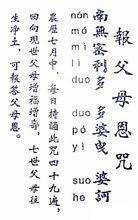 報父母恩咒
南無密利多 多婆曳 娑訶
nán mó mì lì duo duo pó yì suo he
農曆七月中，每日持誦此咒四十九遍，
回向現世父母增福增壽，七世父母往
生淨土，可報答父母恩。